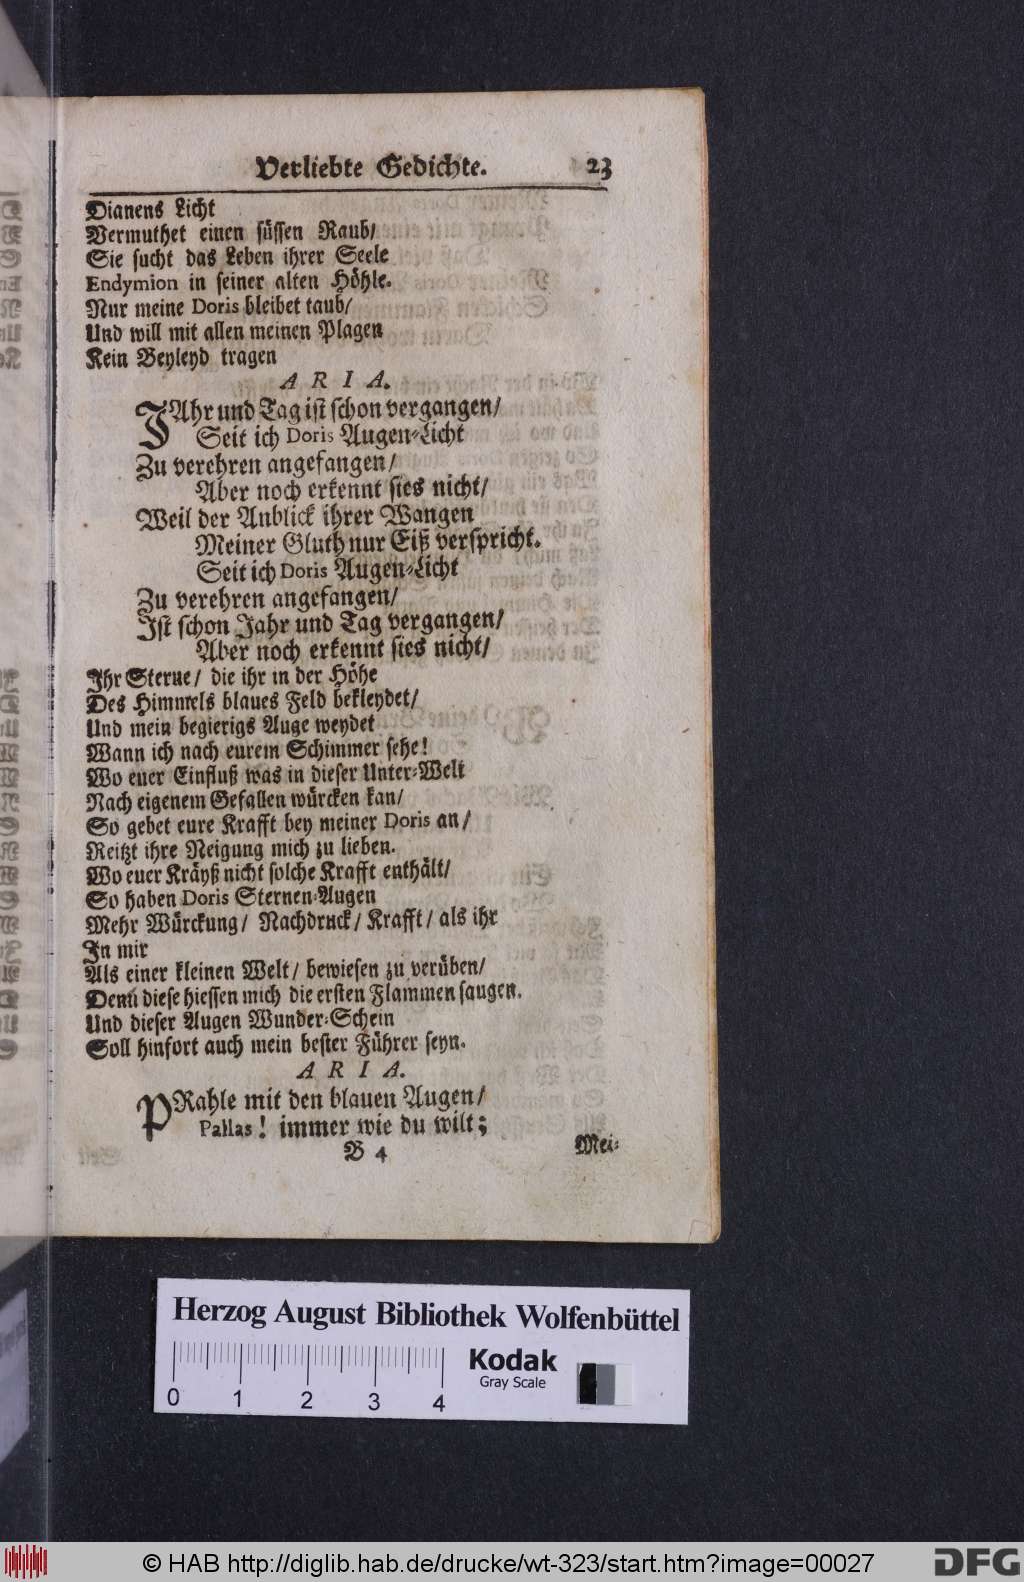 Verliebte Gedichte. 23
Dianens Licht
Vermuthet einen süssen Raub/
Sie sucht das Leben ihrer Seele
Endymion in seiner alten Höhle.
Nur meine Doris bleibet taub/
Und will mit allen meinen Plagen
Kein Beyleyd tragen
ARIA.
JAhr und Tag ist schon vergangen/
Seit ich Doris Augen-Licht
Zu verehren angefangen/
Aber noch erkennt sies nicht/
Weil der Anblick ihrer Wangen
Meiner Gluth nur Eiß verspricht.
Seit ich Doris Augen-Licht
Zu verehren angefangen/
Ist schon Jahr und Tag vergangen/
Aber noch erkennt sies nicht/
Ihr Sterne/ die ihr in der Höhe
Des Himmels blaues Feld bekleydet/
Und mein begierigs Auge weydet
Wann ich nach eurem Schimmer sehe!
Wo euer Einfluß was in dieser Unter-Welt
Nach eigenem Gefallen würcken kan/
So gebet eure Krafft bey meiner Doris an/
Reitzt ihre Neigung mich zu lieben.
Wo euer Kräyß nicht solche Krafft enthält/
So haben Doris Sternen-Augen
Mehr Würckung/ Nachdruck/ Krafft/ als ihr
In mir
Als einer kleinen Welt/ bewiesen zu verüben/
Denn diese hiessen mich die ersten Flammen saugen.
Und dieser Augen Wunder-Schein
Soll hinfort auch mein bester Führer seyn.
ARIA.
PRahle mit den blauen Augen/
Pallas! immer wie du wilt;
B 4 Mei-
Herzog August Bibliothek Wolfenbüttel
Kodak
Gray Scale
0 1 2 3 4
© HAB http://diglib.hab.de/drucke/wt-323/start.htm?image=00027
DFG